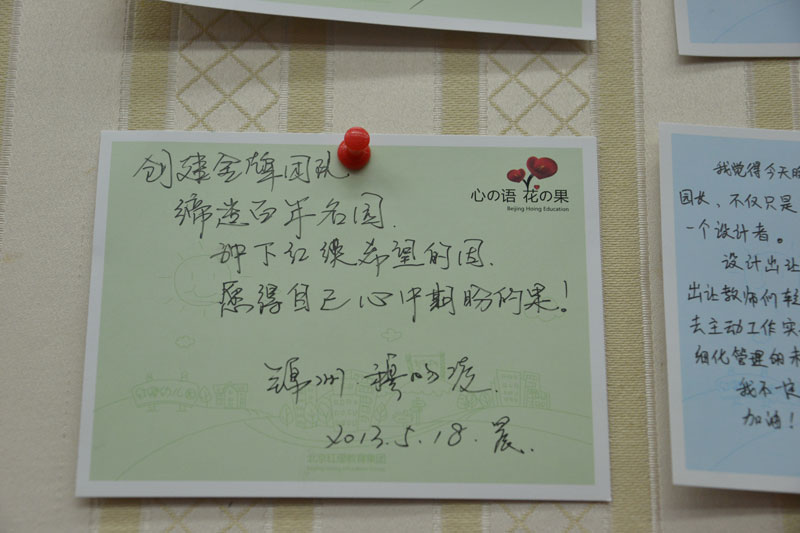 创建金牌团队
缔造百年名园.
种下红缨希望的因.
愿得自己心中期盼的果!
锦州·穆
2013.5.18.晨.
心の语 花の果
Beijing Hoing Education
北京红缨教育集团
我觉得今天
园长、不仅只是
一个设计者。
设计出让
出让教师们轻
去主动工作实
细化管理的
我不
加油!